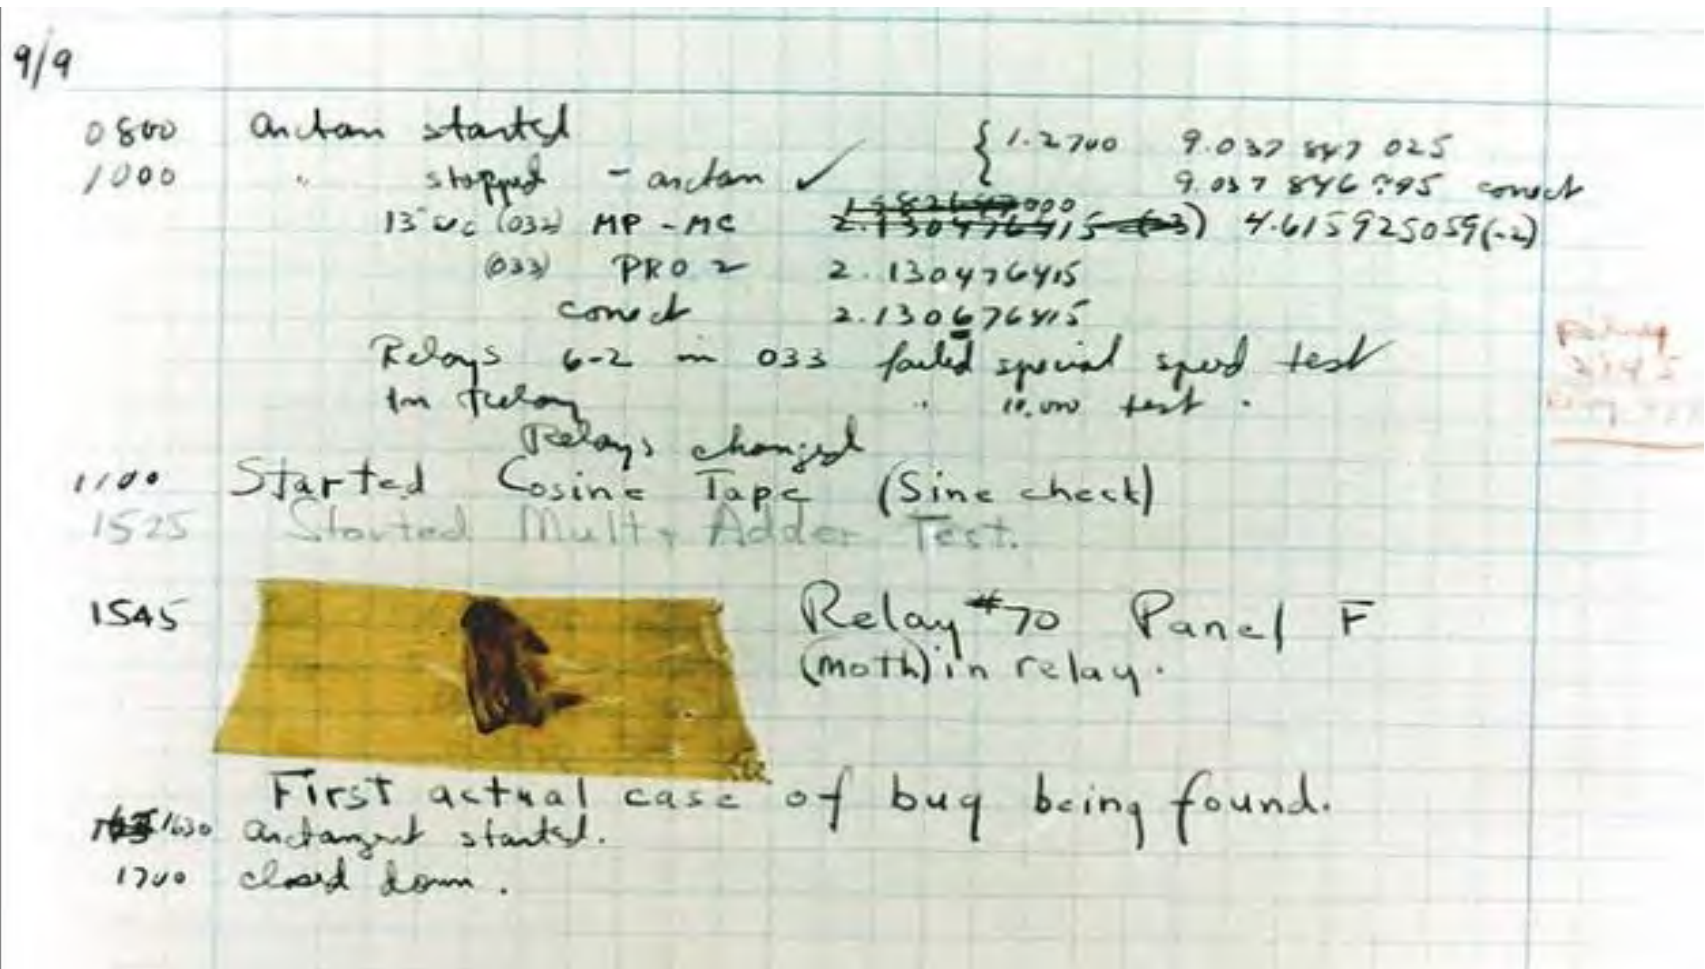 9/9
0800 arctan started { 1.2700 9.037 847 025
1000 " stopped - arctan ✓ 9.037 846 795 correct
13"uc (032) MP - MC 2.130476415 (-3) 4.615925059(-2)
(033) PRO 2 2.130476415
correct 2.130676415
Relays 6-2 in 033 failed special speed test
In Relay " 10.000 test .
Relays changed
1100 Started Cosine Tape (Sine check)
1525 Started Mult + Adder Test.
1545 Relay #70 Panel F
(moth) in relay.
First actual case of bug being found.
1630 arctangent started.
1700 closed down .
Relay